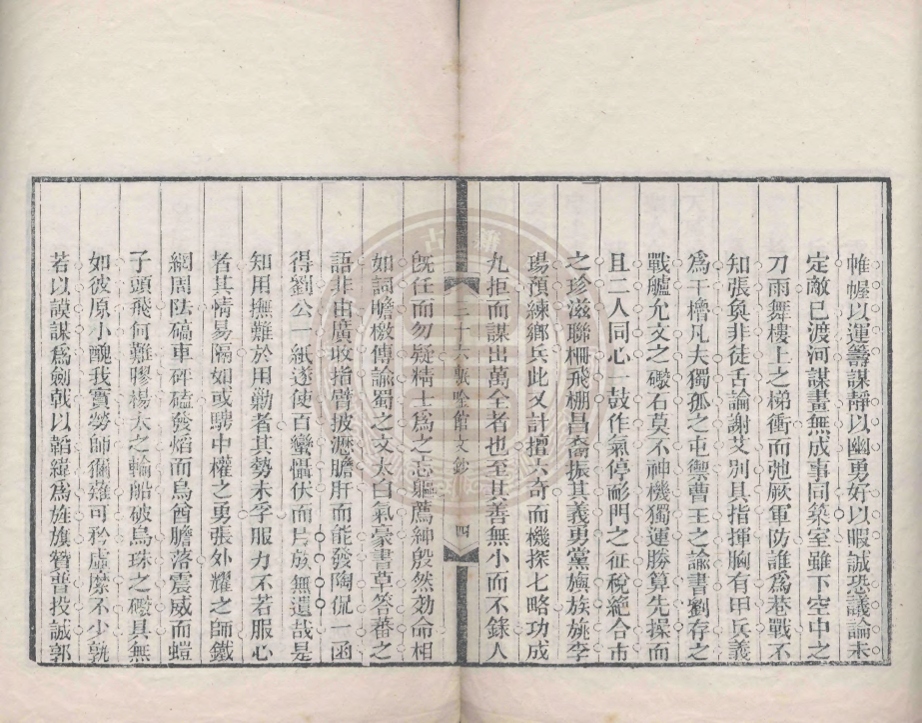 帷幄以運籌謀靜以幽勇好以暇誠恐議論未
定敵已渡河謀畫無成事同築室雖下空中之
刀雨舞樓上之梯衝而弛厥軍防誰為巷戰不
知張奐非徒舌論謝艾別具指揮胸有甲兵義
為干櫓凡夫獨孤之屯禦曹王之諭書劉存之
戰艫允文之礮石莫不神機獨運勝算先操而
且二人同心一鼓作氣停彭門之征稅絕合市
之珍滋聯柵飛棚昌裔振其義勇黨旟族旐李
瑒預練鄉兵此又計擅六奇而機探七略功成
九拒而謀出萬全者也至其善無小而不錄人
三十六瓶唫館文鈔 四
旣任而勿疑精士為之忘軀薦紳殷然効命相
如詞贍檄傳諭蜀之文太白氣豪書草答蕃之
語非由廣收指臂披瀝膽肝而能發陶侃一函
得劉公一紙遂使百蠻懾伏而片䑸無遺哉是
知用撫難於用勦者其勢未孚服力不若服心
者其情易隔如或騁中權之勇張外耀之師鐵
網周阹礮車砰磕發熖而烏酋膽落震威而螘
子頭飛何難膠楊太之輪船破烏珠之礮具無
如彼原小醜我實勞師彌薙可矜虛縻不少孰
若以謨謀為劍戟以韜緯為旌旗贊普投誠郭